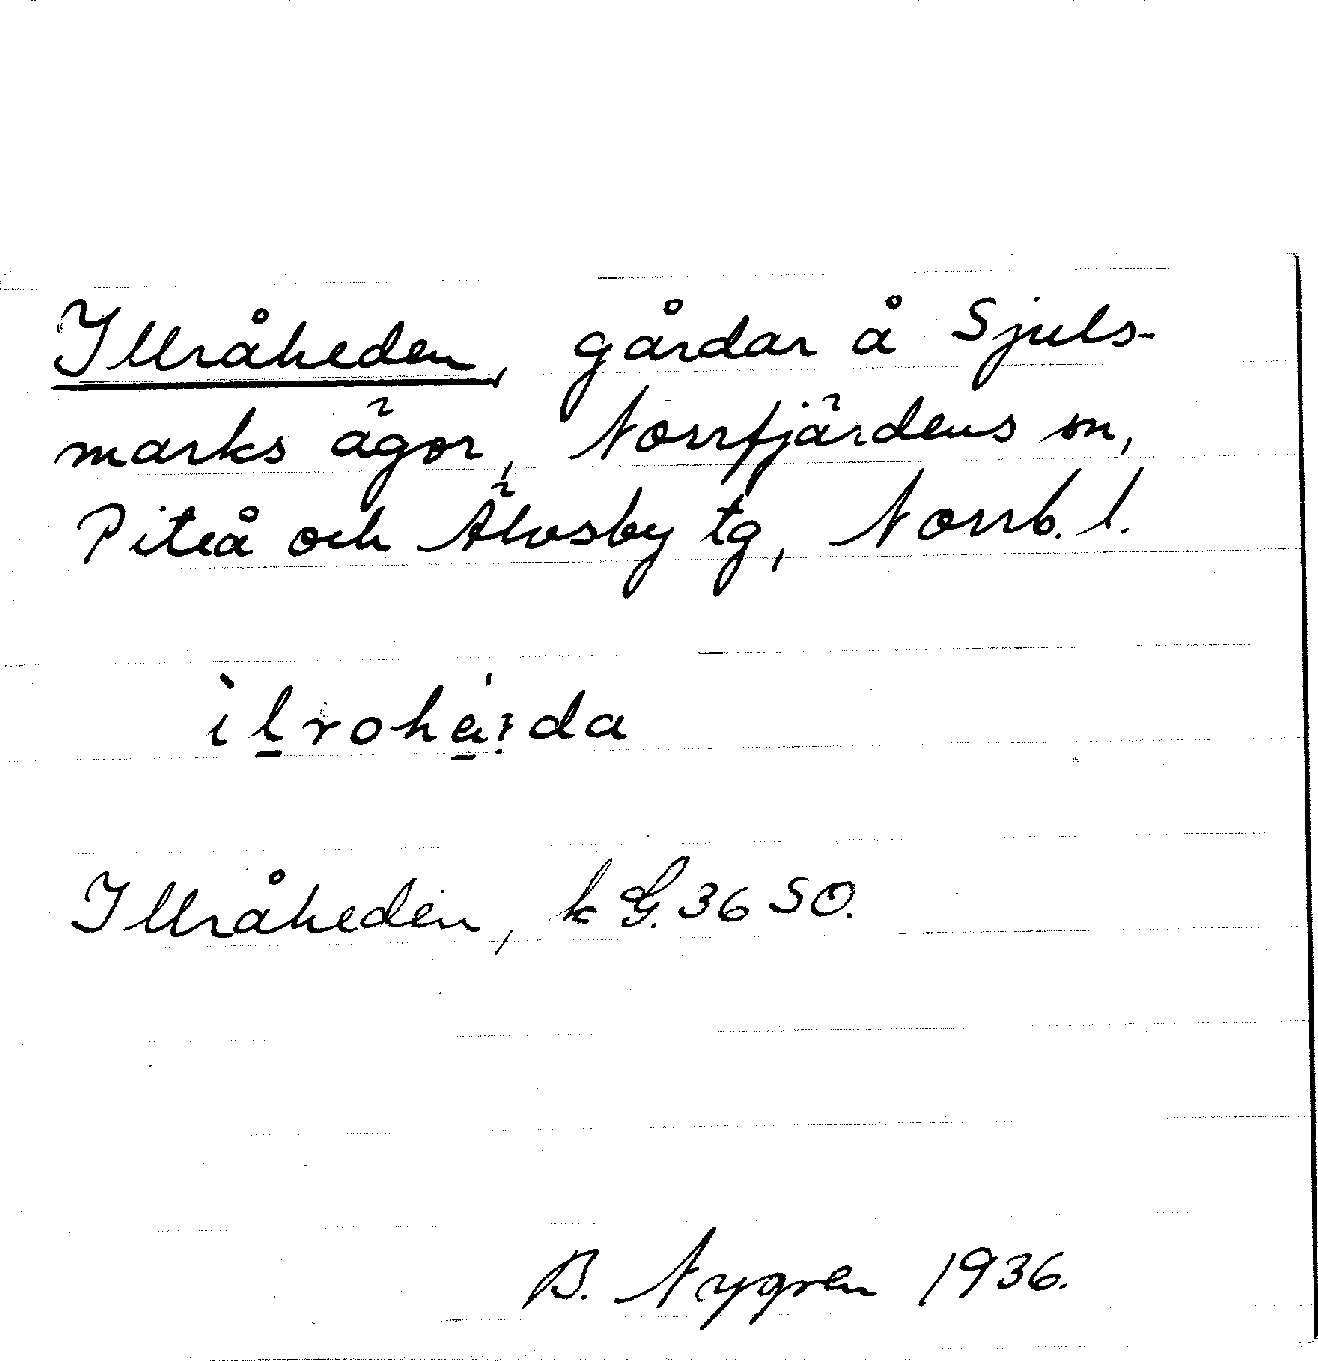 Illråheden, gårdar å Sjuls-
marks ägor, Norrfjärdens sn,
Piteå och Älvsby tg, Norrb. l.
ìl̲rohé̲i̯da
Illråheden, k G. 3650.
B. Nygren 1936.